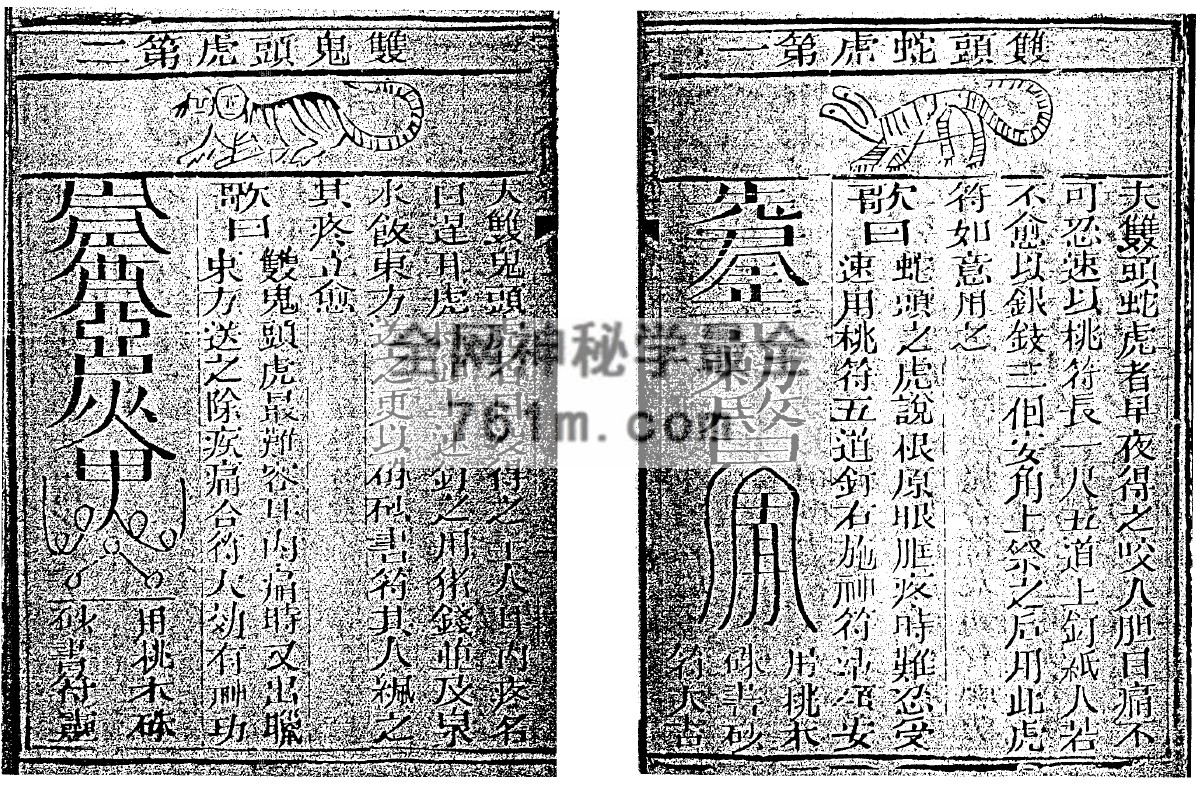 雙頭蛇虎第一
夫雙頭蛇虎者早夜得之咬人胆目痛不
可忍速以桃符長一八五道上釘紙人若
不愈以銀錢三佰安角上祭之后用此虎
符如意用之
歌曰 蛇頭之虎說根原眼眶疼時難忍受
速用桃符五道釘右施神符早須安
用桃木
硃書砂
符大吉
雙鬼頭虎第二
夫雙鬼頭虎 得之主人耳内疼名
曰逞耳虎 釘之用 錢並及泉
水飲東方送之更以硃砂書符其人佩之
其疼立愈
歌曰 雙鬼頭虎最難容耳内痛時又出聯
東方送之除疾痛合符大効有神功
用桃木硃
砂書符
全网神秘学最全
761m.com